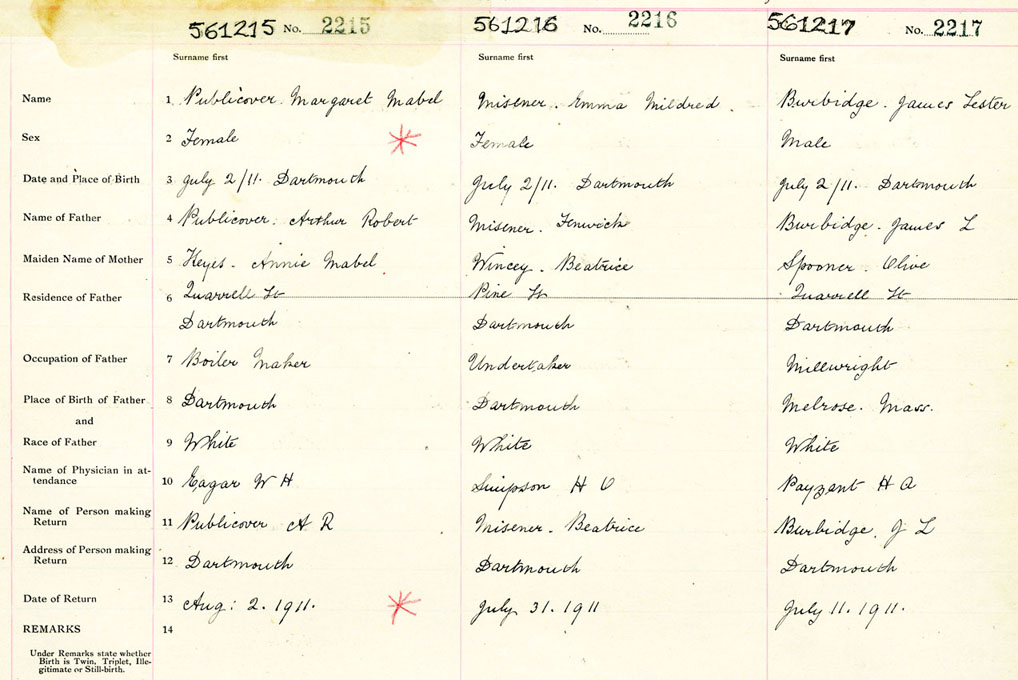 561215 No. 2215 561216 No. 2216 561217 No. 2217
Surname first Surname first Surname first
Name 1 Publicover. Margaret Mabel Misener. Emma Mildred. Burbidge. James Lester
Sex 2 Female Female Male
Date and Place of Birth 3 July 2/11. Dartmouth July 2/11. Dartmouth July 2/11. Dartmouth
Name of Father 4 Publicover. Arthur Robert Misener. Fenwick Burbidge. James L
Maiden Name of Mother 5 Keyes. Annie Mabel Wincey. Beatrice Spooner. Olive
Residence of Father 6 Quarrell St Pine St Quarrell St
Dartmouth Dartmouth Dartmouth
Occupation of Father 7 Boiler Maker Undertaker Millwright
Place of Birth of Father 8 Dartmouth Dartmouth Melrose. Mass.
and
Race of Father 9 White White White
Name of Physician in at-
tendance 10 Eagar W H Simpson H O Payzant H A
Name of Person making
Return 11 Publicover A R Misener. Beatrice Burbidge. J L
Address of Person making
Return 12 Dartmouth Dartmouth Dartmouth
Date of Return 13 Aug: 2. 1911. July 31. 1911 July 11. 1911.
REMARKS 14
Under Remarks state whether
Birth is Twin, Triplet, Ille-
gitimate or Still-birth.